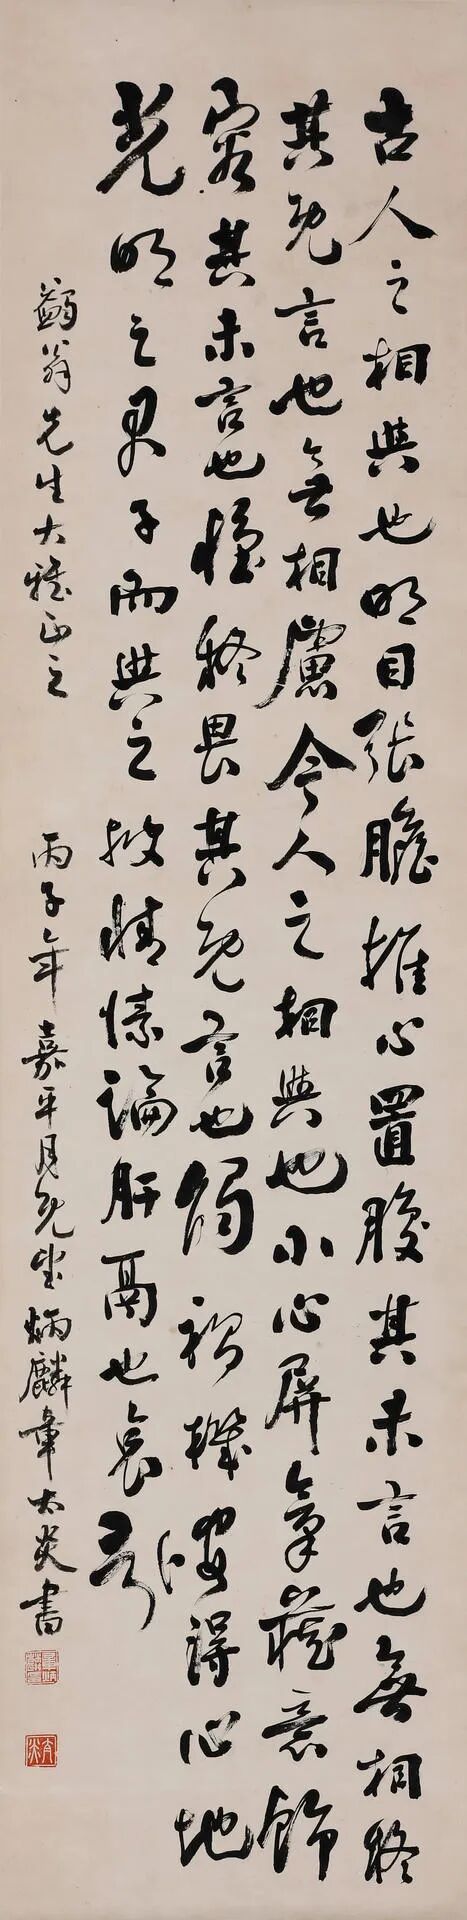 古人之相與也明目張膽推心置腹其未言也無相疑
其既言也無相慮今人之相與也小心屏氣藏意飾
容其未言也懷疑畏其既言也觸禍機得心地
光明之君子而與之披情愫論肝鬲也哀哉
翁先生大雅正之
丙子年嘉平月既望炳麟章太炎書
太炎